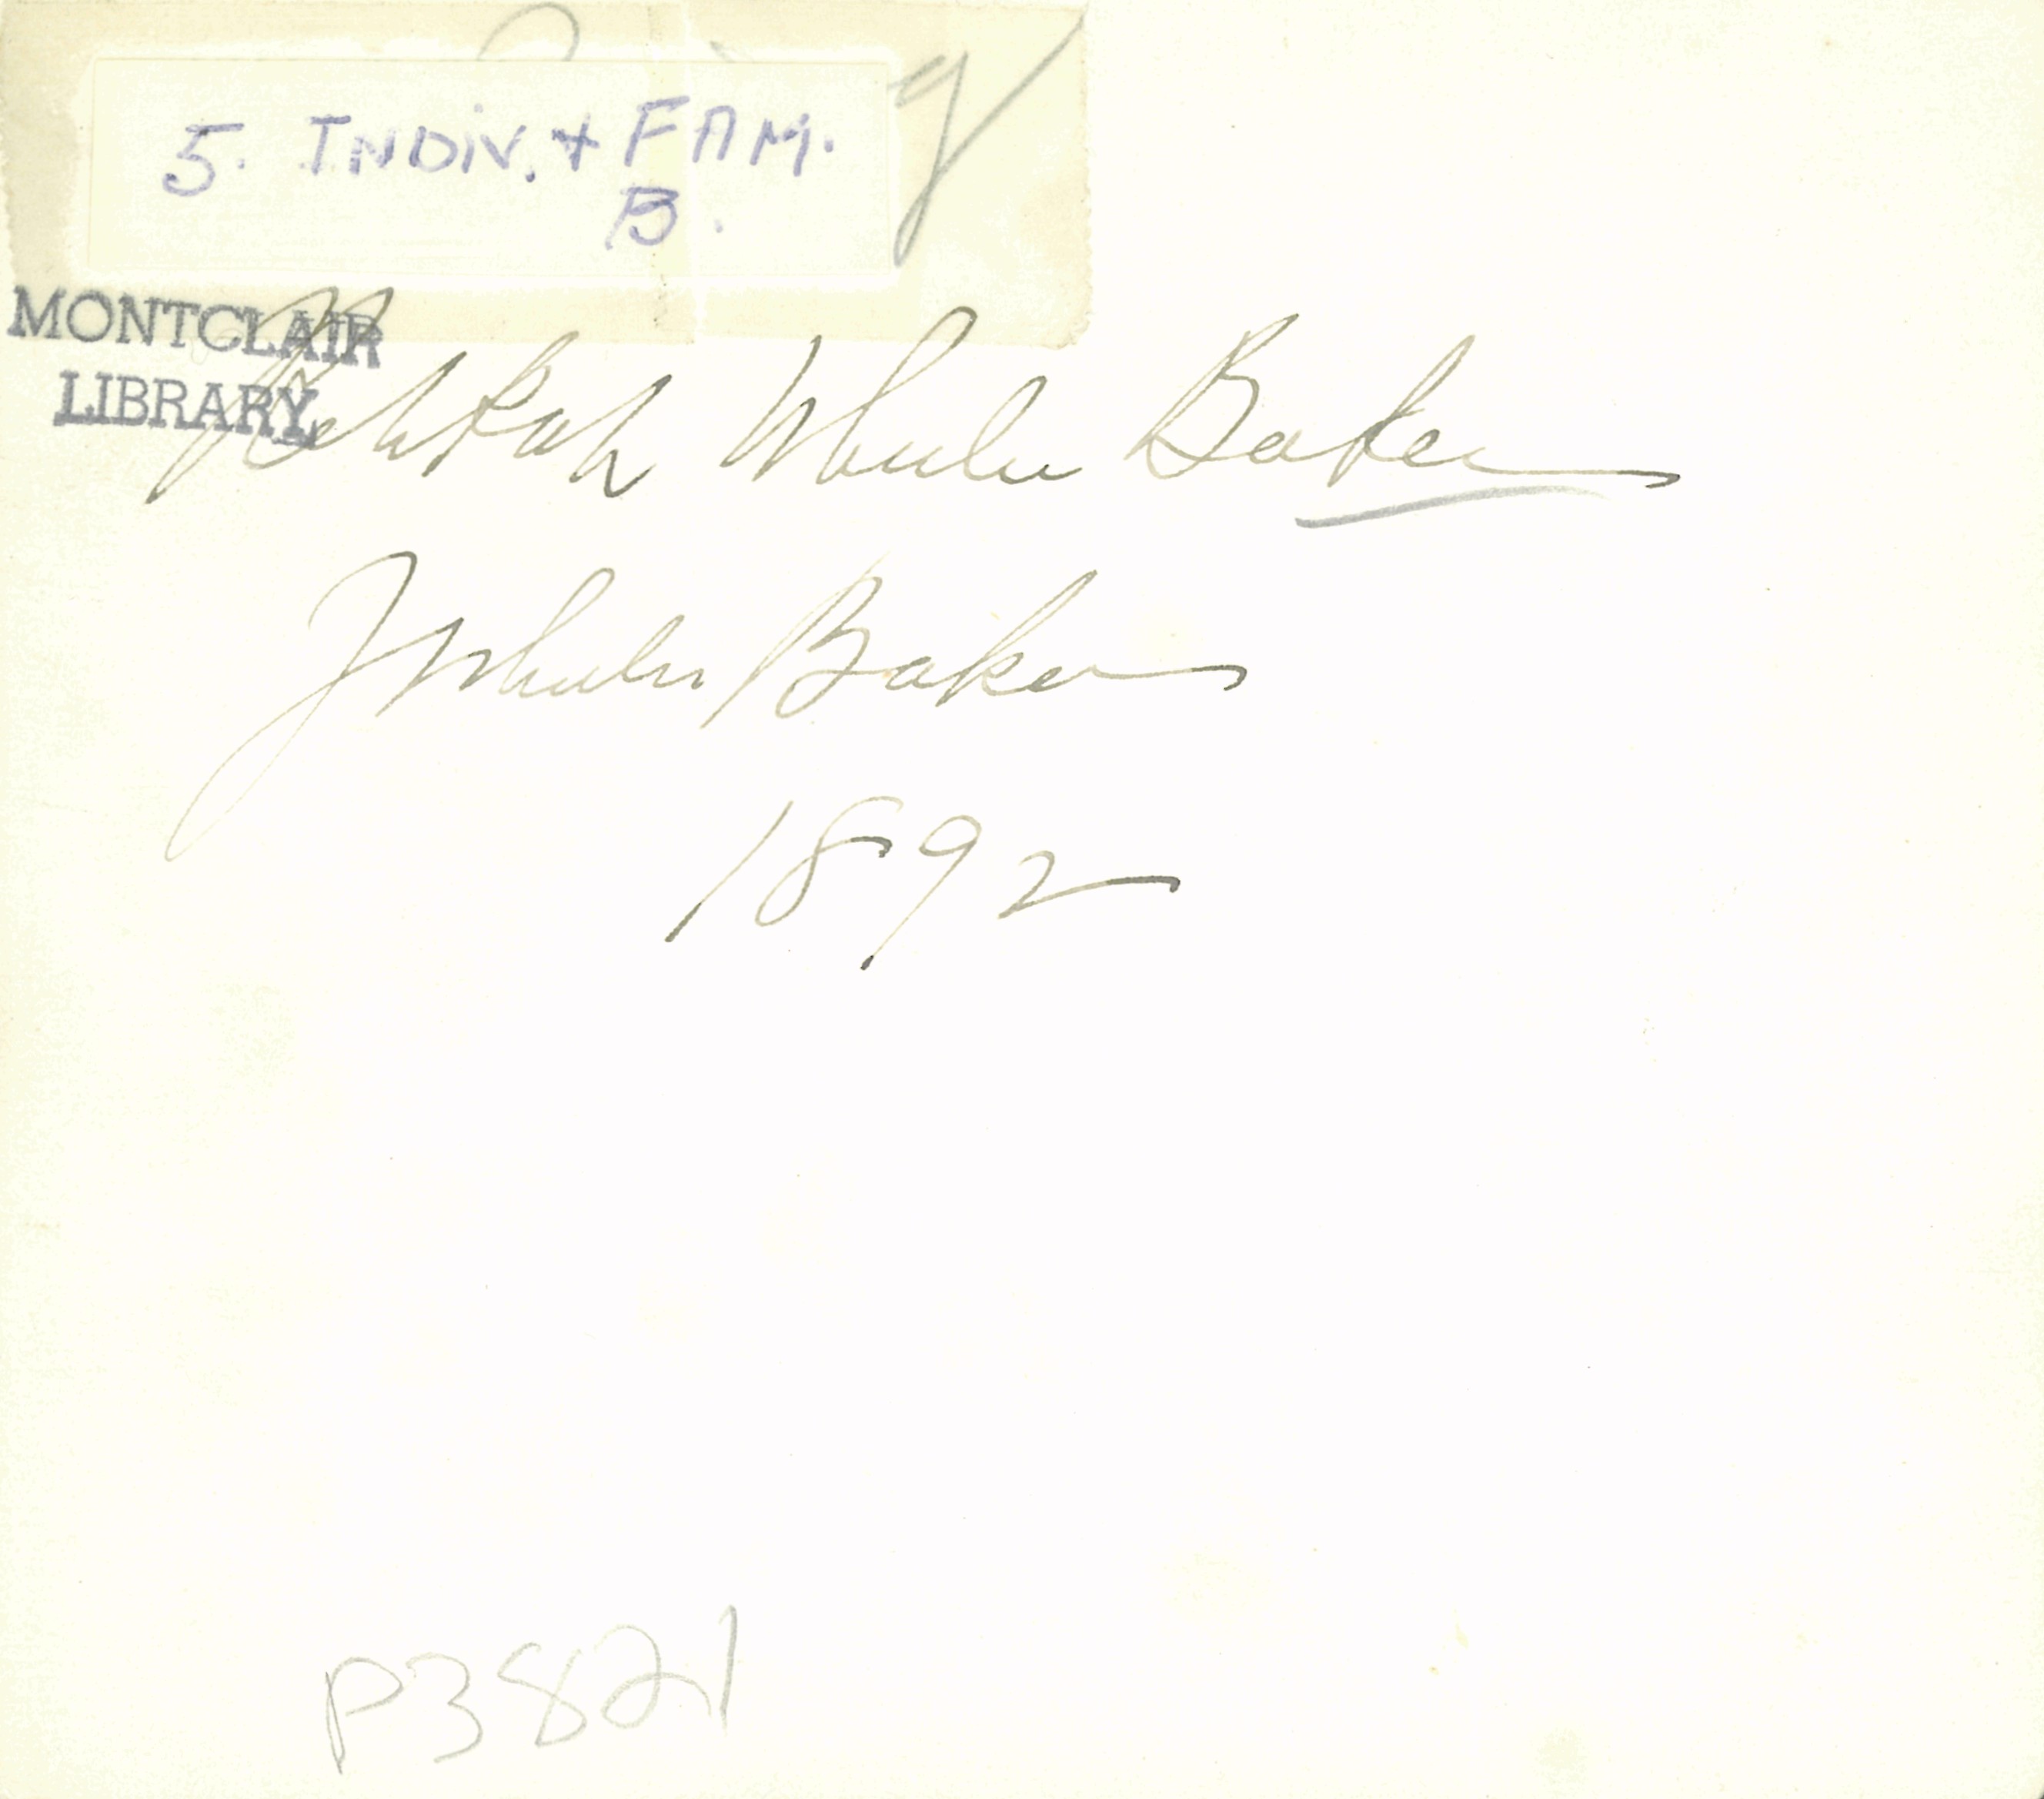 5. INDIV. + FAM.
B.
MONTCLAIR
LIBRARY
Wheeler Baker
J Wheeler Baker
1892
P3821